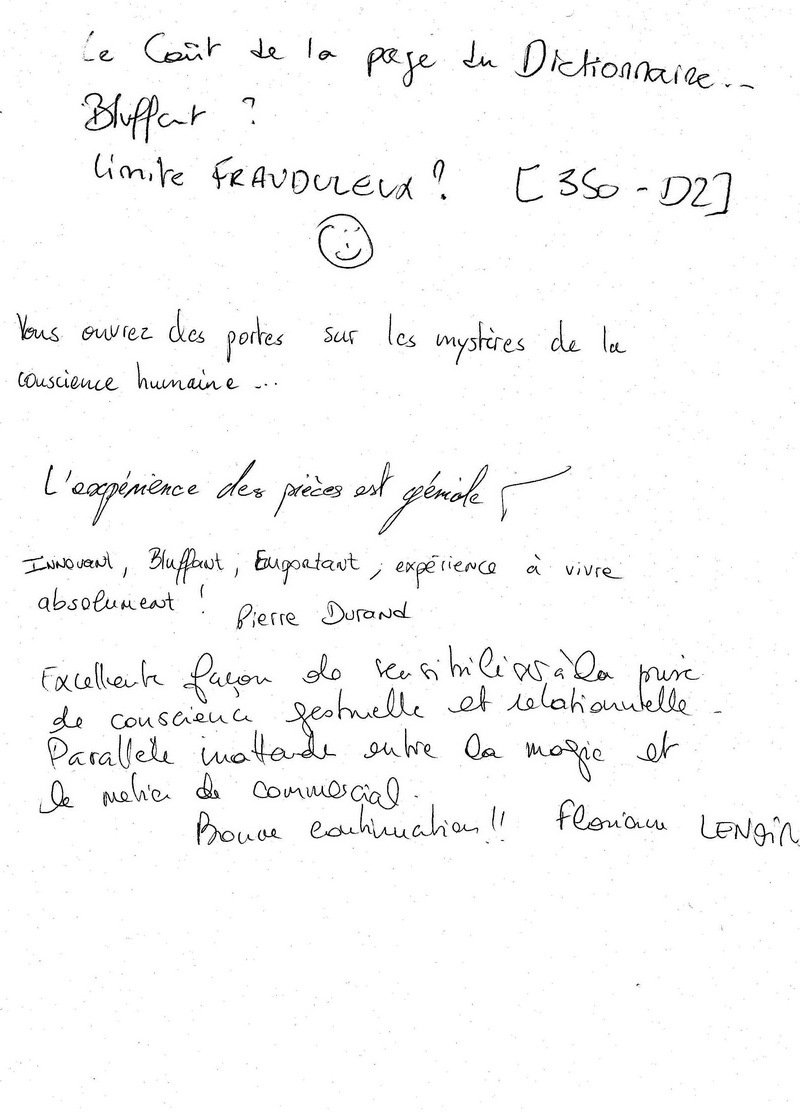 Le Coût de la page du Dictionnaire...
Bluffant ?
limite FRAUDULEUX ? [350 - D2]
Vous ouvrez des portes sur les mystères de la
conscience humaine ...
L'expérience des pièces est géniale
INNOVANT, Bluffant, Emportant, expérience à vivre
absolument ! Pierre Durand
Excellente façon de sensibiliser à la prise
de conscience gestuelle et relationnelle -
Parallèle inattendu entre la magie et
le métier de commercial.
Bonne continuation !! Floriane LENOIR